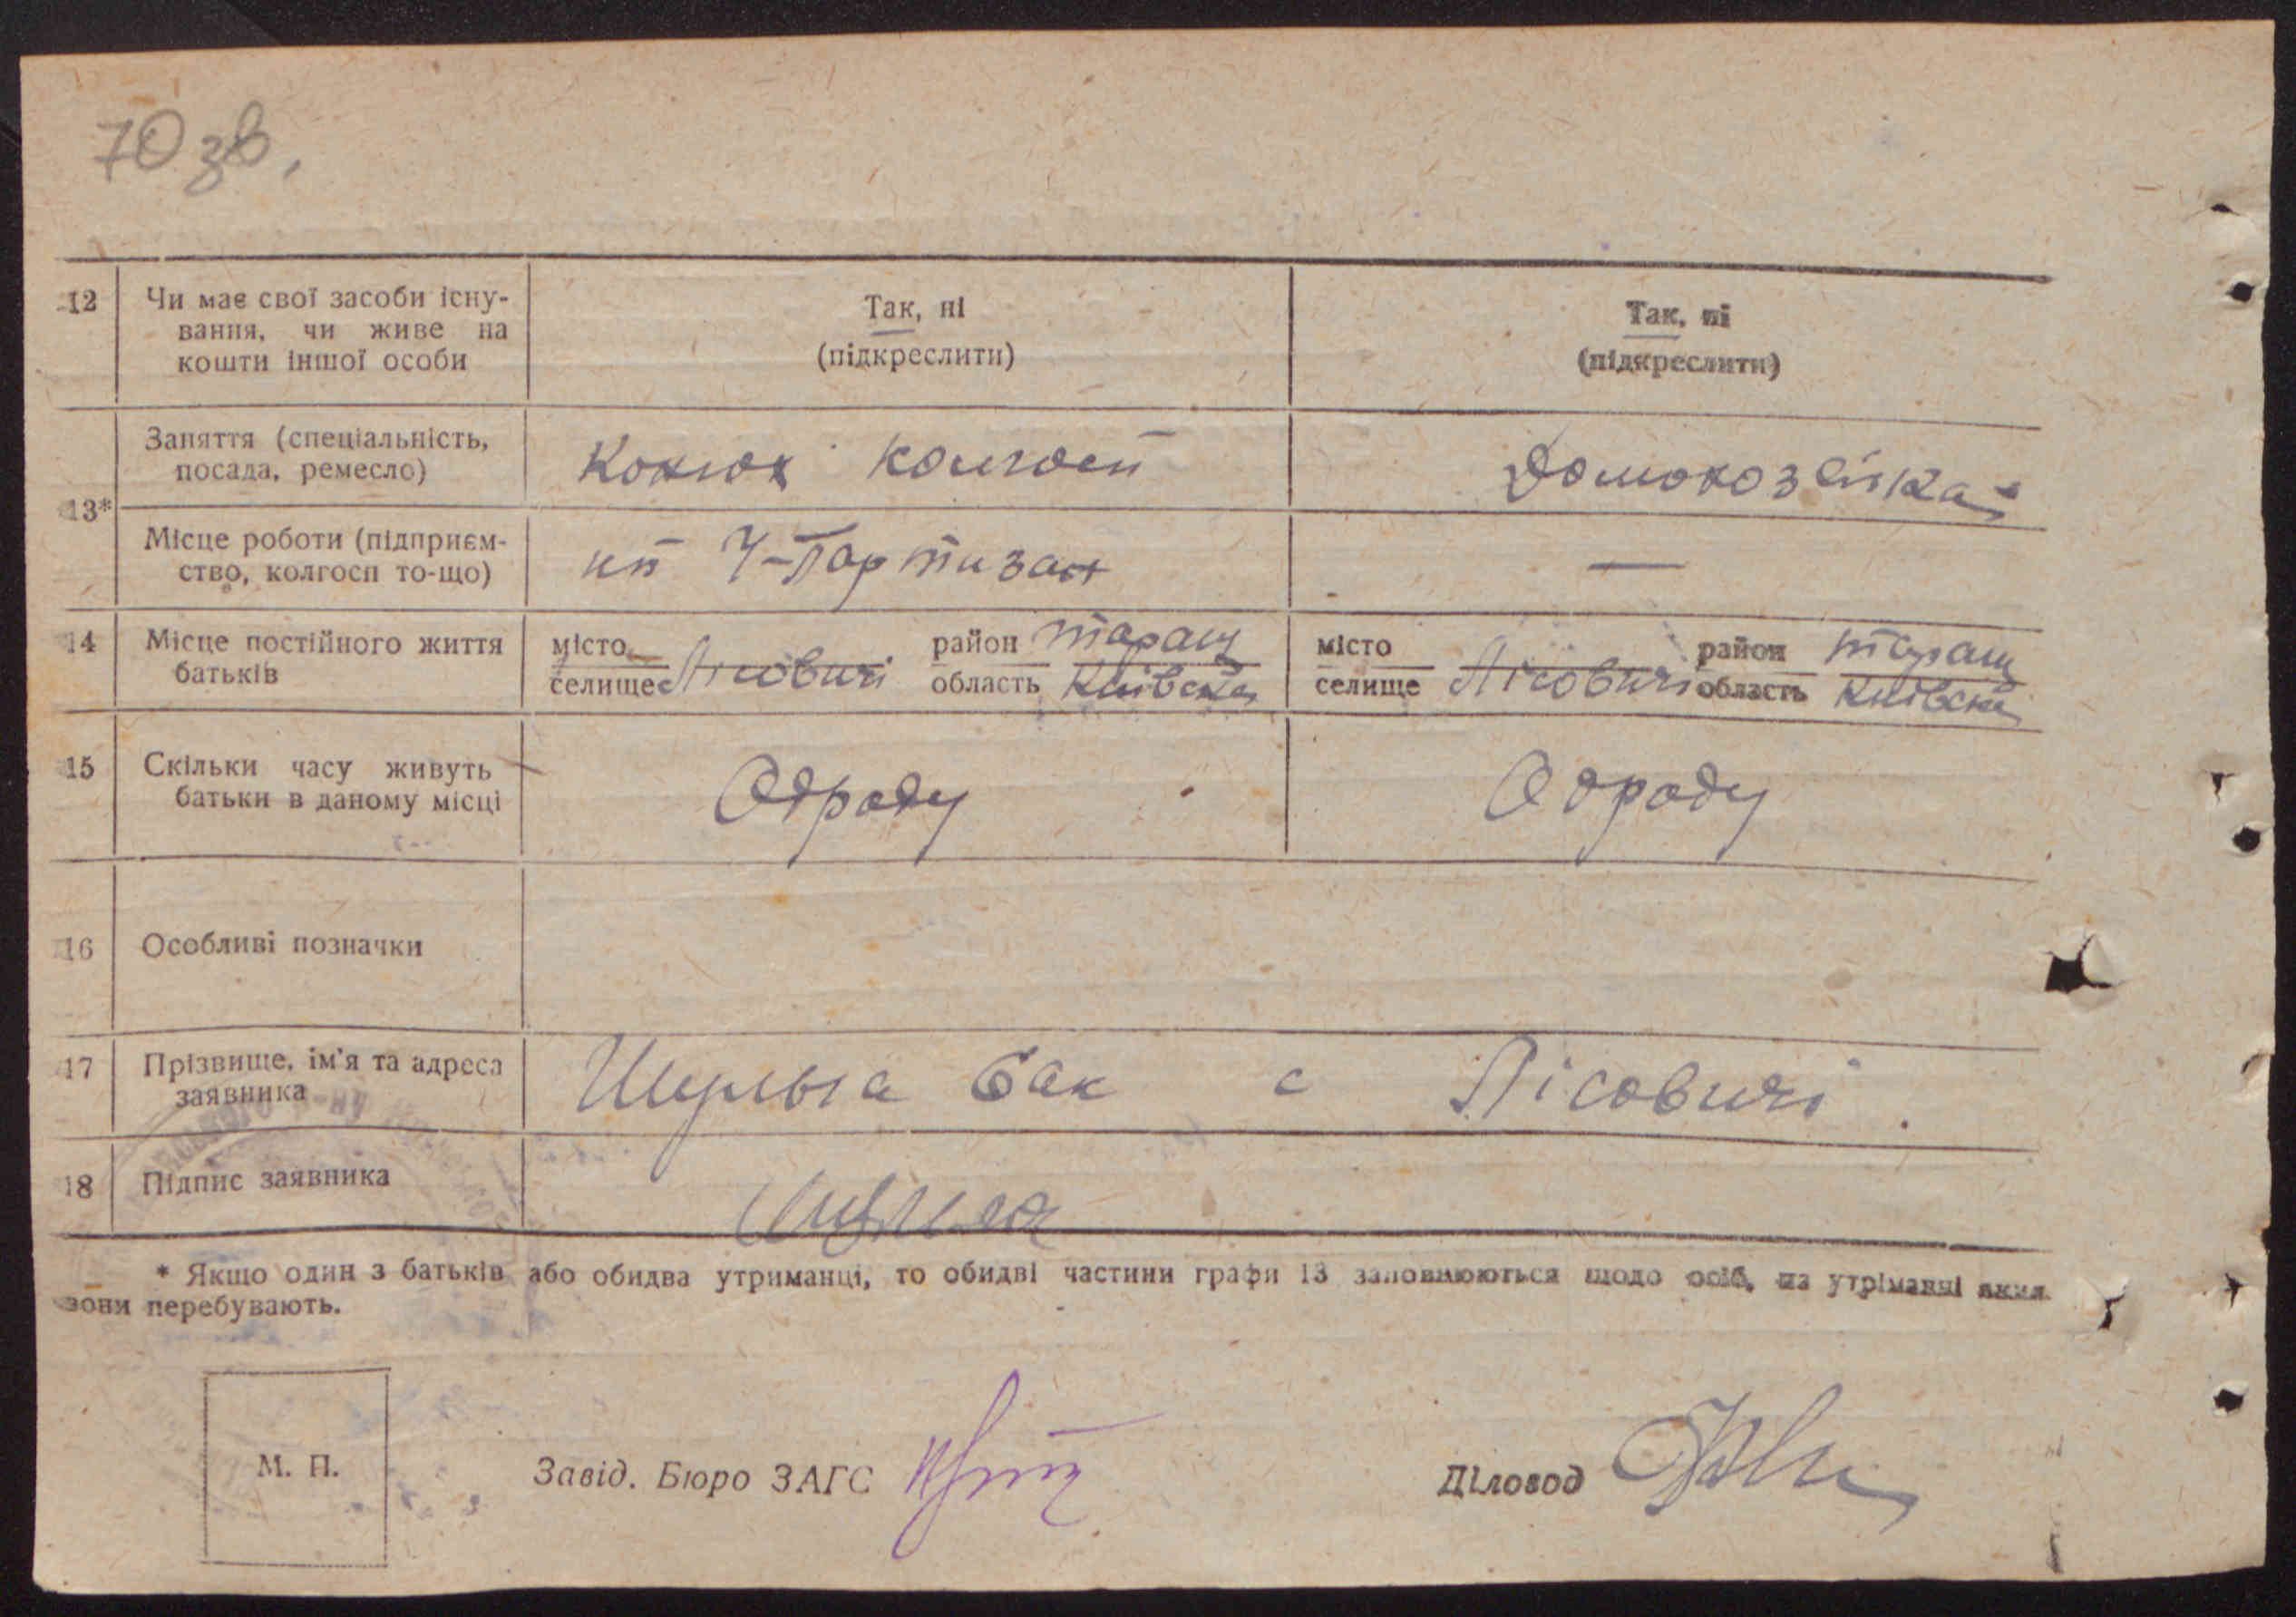 70 зв.
12 Чи має свої засоби існу- Так, ні Так, ні
вання, чи живе на (підкреслити) (підкреслити)
кошти іншої особи
13* Заняття (спеціальність, Конюх колгосп Домохозяйка
посада, ремесло)
Місце роботи (підприєм- Ч-Партизан —
ство, колгосп то-що)
14 Місце постійного життя місто район Таращ місто район Таращ
батьків селище Лісовичі область Київська селище Лісовичі область Київська
15 Скільки часу живуть Одроду Одроду
батьки в даному місці
16 Особливі позначки
17 Прізвище, ім'я та адреса с Лісовичі
заявника
18 Підпис заявника
* Якщо один з батьків або обидва утриманці, то обидві частини графи 13 заповнюються щодо осіб, на утріманні яких
вони перебувають.
М. П. Завід. Бюро ЗАГС Діловод